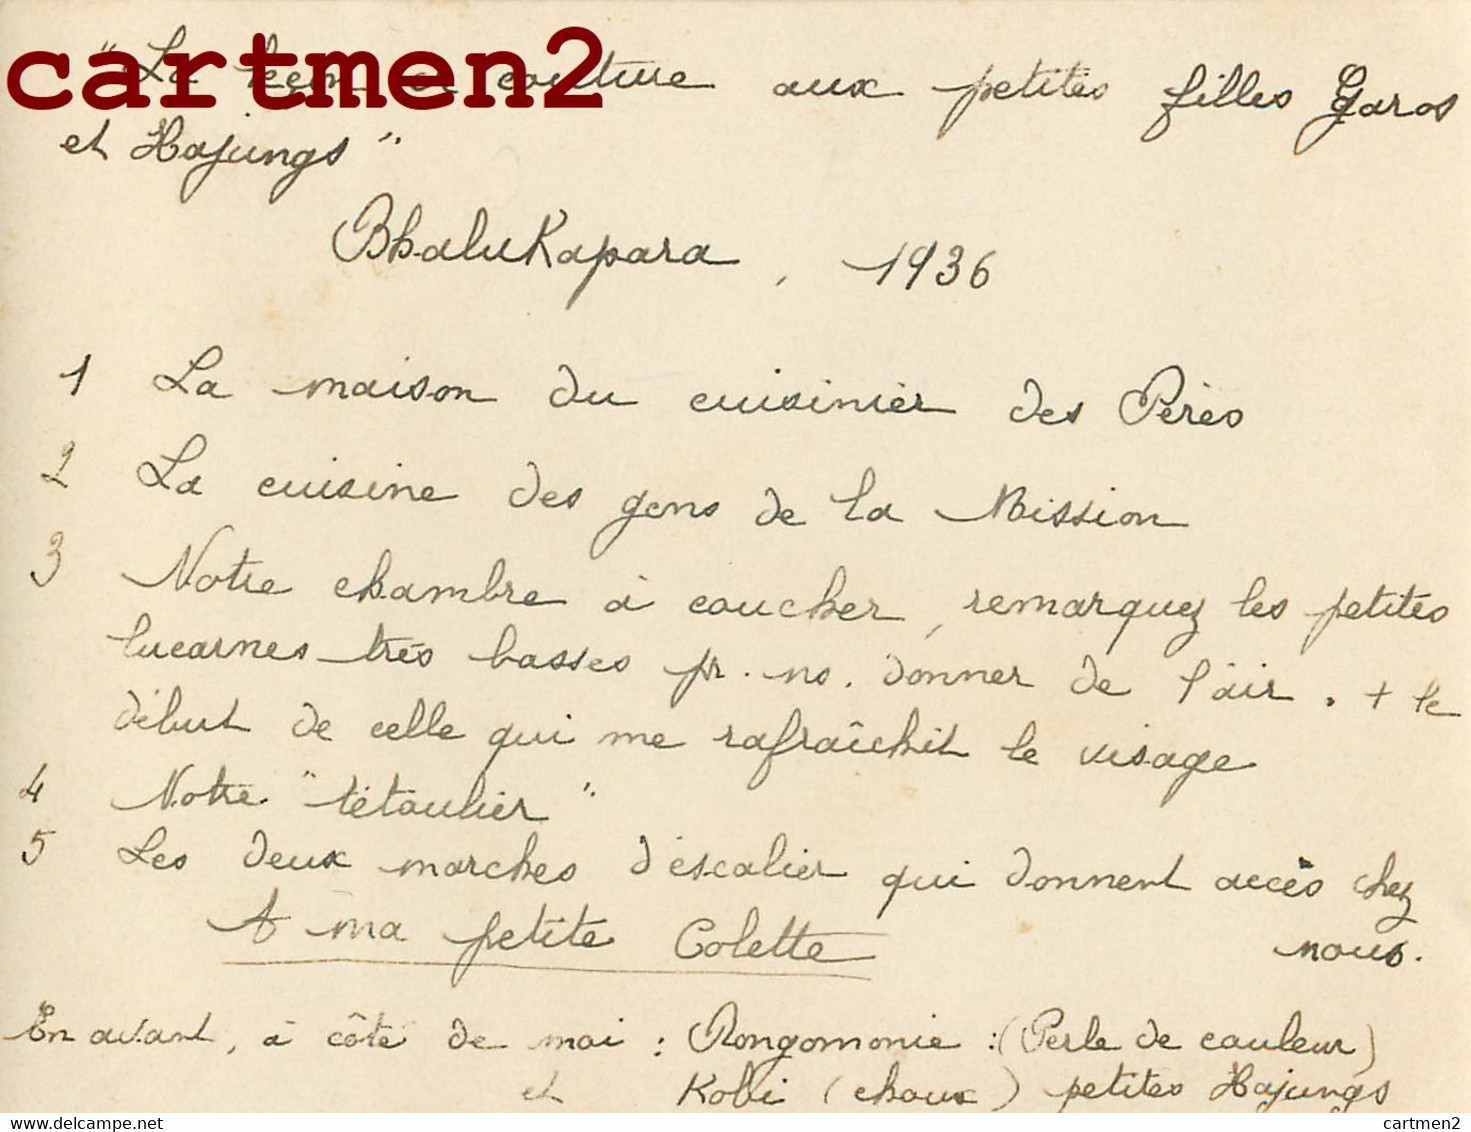 cartmen2
"La leçon de couture aux petites filles Garos
et Hajungs"
Bhalukapara, 1936
1 La maison du cuisinier des Pères
2 La cuisine des gens de la Mission
3 Notre chambre à coucher, remarquez les petites
lucarnes très basses pr. ns. donner de l'air. + le
début de celle qui me rafraîchit le visage
4 Notre "tétaulier"
5 Les deux marches d'escalier qui donnent accès chez
nous.
A ma petite Colette
En avant, à côté de moi : Rongomonie : (Perle de couleur)
et Kobi (choux) petites Hajungs
delcampe.net
cartmen2